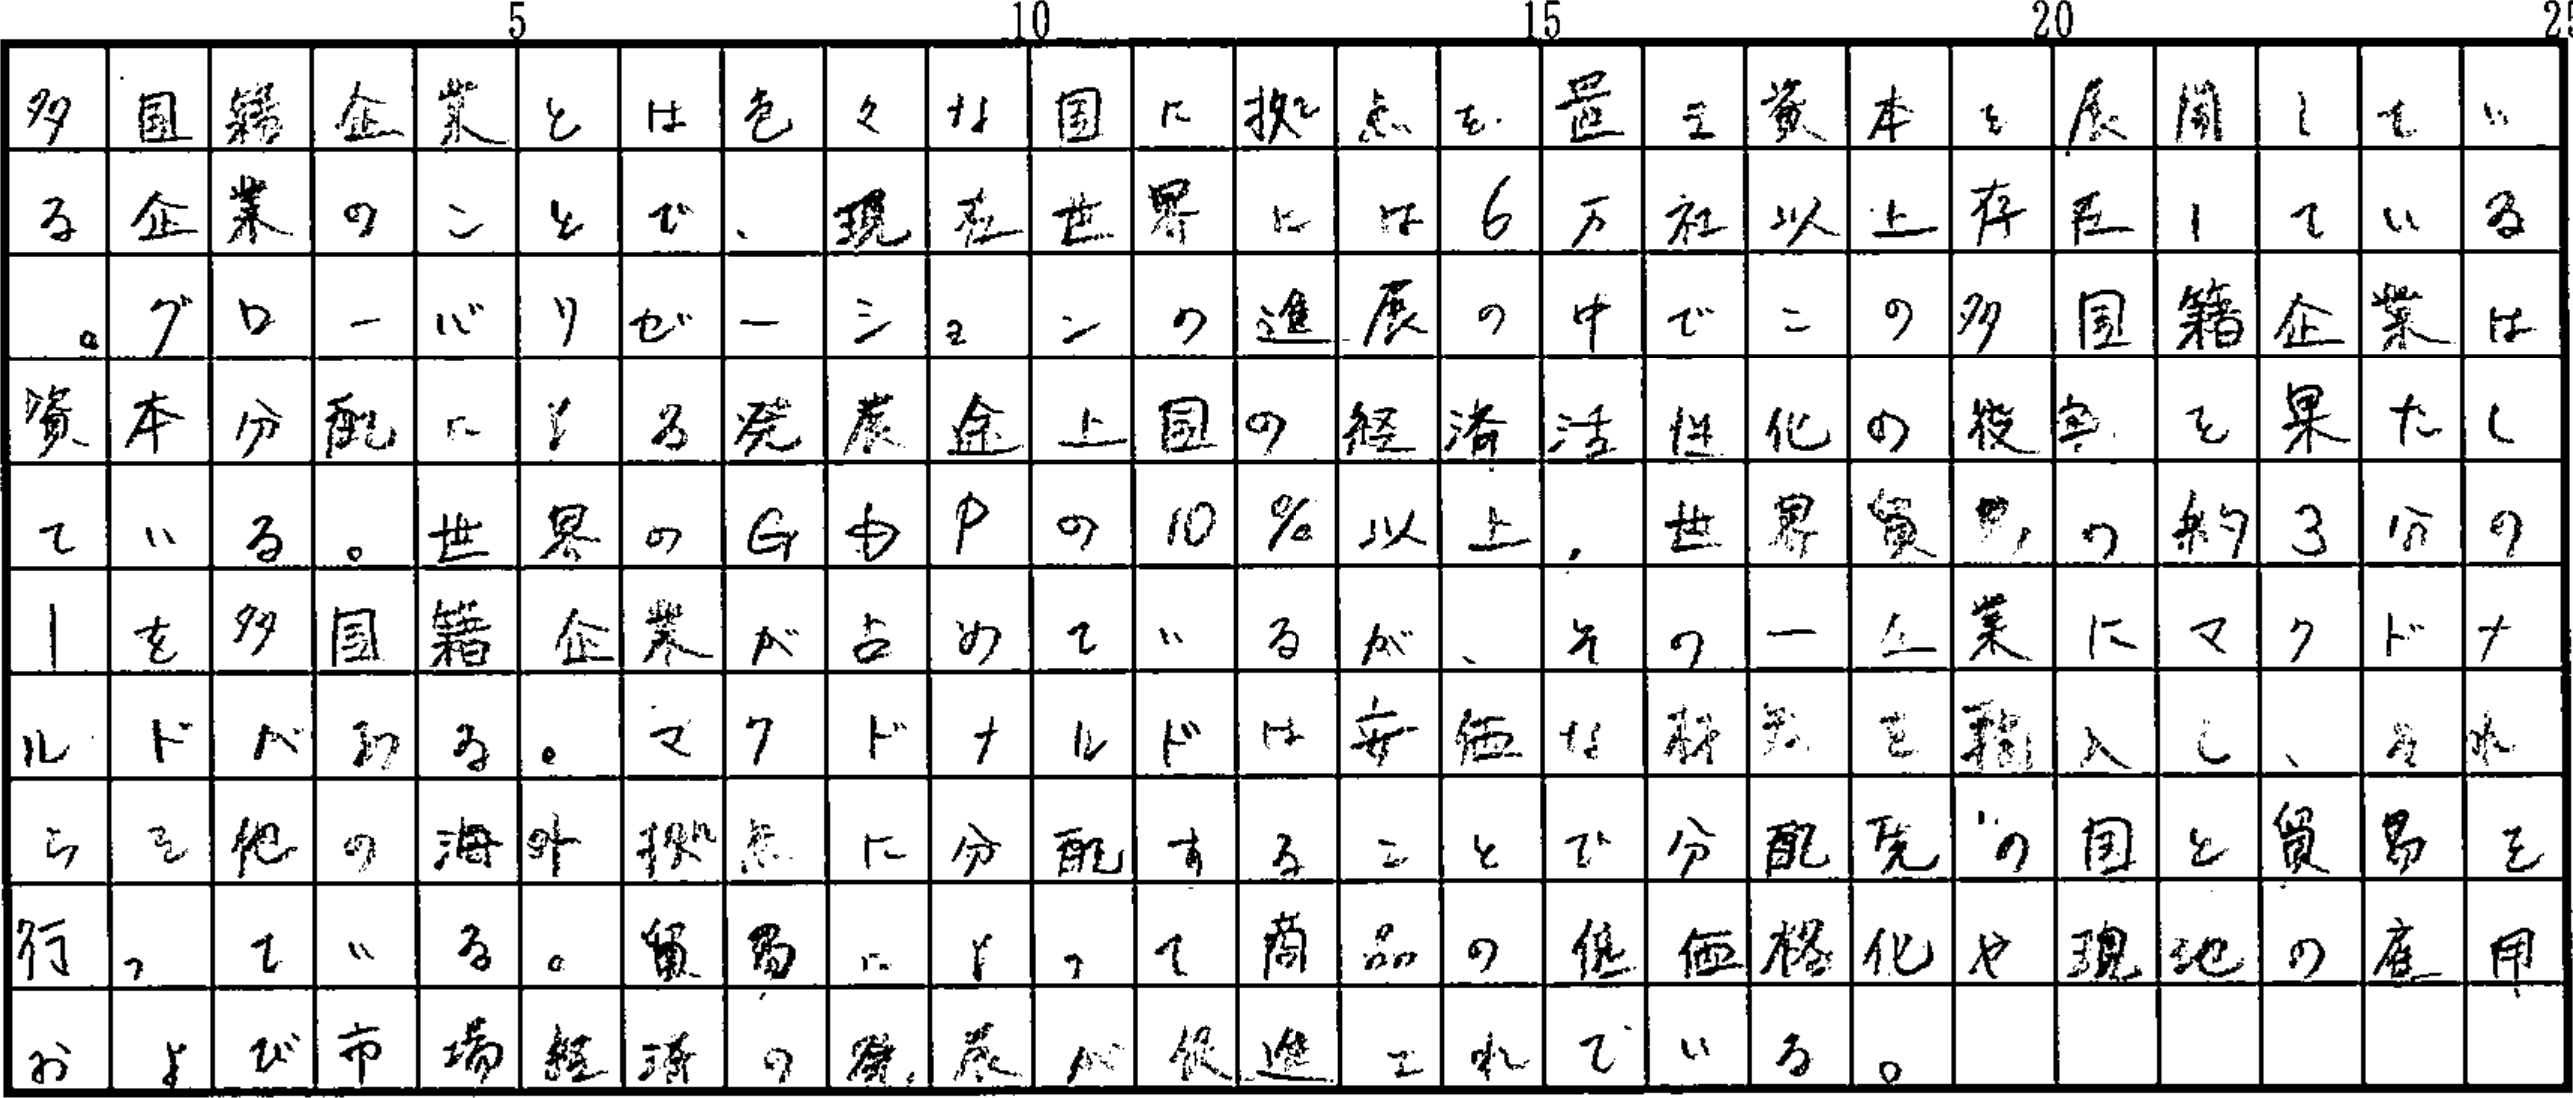 5 10 15 20 25
多国籍企業とは色々な国に拠点を置き資本を展開してい
る企業のことで、現在世界には6万社以上存在している
。グローバリゼーションの進展の中でこの多国籍企業は
資本分配による発展途上国の経済活性化の役割を果たし
ている。世界のGDPの10%以上、世界貿易の約3分の
1を多国籍企業が占めているが、その一企業にマクドナ
ルドがある。マクドナルドは安価な材料を輸入し、それ
らを他の海外拠点に分配することで分配先の国と貿易を
行っている。貿易によって商品の低価格化や現地の雇用
および市場経済の発展が促進されている。